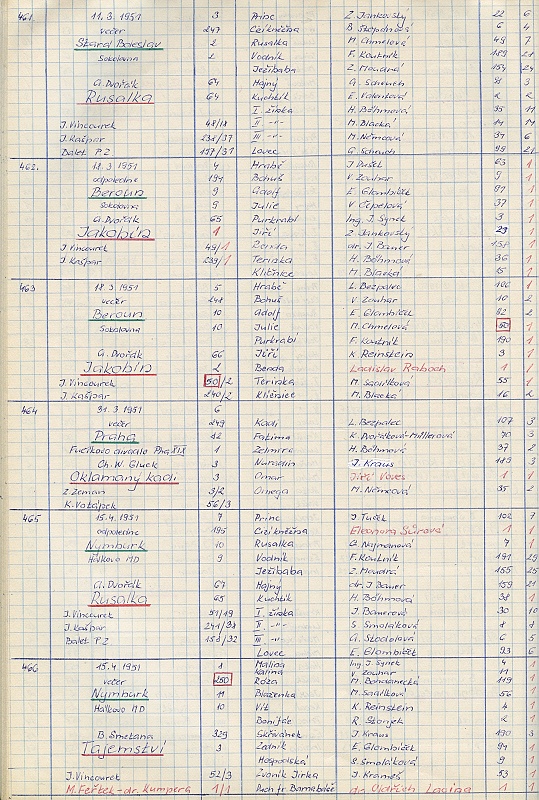 461. 11.3.1951 3 Princ Z. Jankovský 22 6
večer 247 Cizí kněžna B. Štěpánová 6 4
Stará Boleslav 2 Rusalka M. Chmelová 49 7
Sokolovna 2 Vodník F. Koutník 189 21
Ježibaba Z. Moudrá 154 24
A. Dvořák 64 Hajný
Rusalka 64 Kuchtík E. Valentová 2 2
I. žínka H. Böhmová 35 11
J. Vincourek 48/18 II -"- M. Blacká 14
J. Kašpar 238/37 III -"- M. Němcová 34 6
Balet PZ 157/31 Lovec G. Scheuch 99 21
462. 18.3.1951 4 Hrabě J. Dušek 63 1
odpoledne 191 Bohuš V. Zouhar 9 1
Beroun 9 Adolf E. Glombíček 91 1
Sokolovna 9 Julie V. Čepelová 37 1
A. Dvořák 65 Purkrabí Ing. J. Synek 3 1
Jakobín 1 Jiří Z. Jankovský 23 1
J. Vincourek 49/1 Benda dr. J. Bauer 158 1
J. Kašpar 239/1 Terinka H. Böhmová 36 1
Klíčnice M. Blacká 15 1
463 18.3.1951 5 Hrabě L. Bezpalec 106 1
večer 248 Bohuš V. Zouhar 10 2
Beroun 10 Adolf E. Glombíček 92 2
Sokolovna 10 Julie M. Chmelová 50 1
Purkrabí F. Koutník 190 1
A. Dvořák 66 Jiří K. Reinstein 3 1
Jakobín 2 Benda Ladislav Raboch 1 1
J. Vincourek 50/2 Terinka M. Sadílková 55 1
J. Kašpar 240/2 Klíčnice M. Blacká 16 2
464 31.3.1951 6
večer 249 Kadi L. Bezpalec 107 3
Praha 12 Fatima K. Dvořáková-Müllerová 70 3
Fučíkovo divadlo Pha XIX 1 Zelmira H. Böhmová 37 2
Ch. W. Gluck 3 Nuradin J. Kraus 189 3
Oklamaný kadi 3 Omar Jiří Voves 1 1
Z. Zeman 3/2 Omega M. Němcová 35 2
K. Vašápek 56/3
465 15.4.1951 7 Princ J. Tuček 102 7
odpoledne 195 Cizí kněžna Eleonora Šírová 1 1
Nymburk 10 Rusalka A. Najmanová 7 1
Hálkovo MD 9 Vodník F. Koutník 191 29
Ježibaba Z. Moudrá 155 25
A. Dvořák 67 Hajný dr. J. Bauer 159 21
Rusalka 65 Kuchtík H. Böhmová 38 1
J. Vincourek 51/19 I. žínka J. Bauerová 30 10
J. Kašpar 241/38 II -"- S. Smoláková 8 8
Balet PZ 158/32 III -"- A. Stodolová 6 5
Lovec E. Glombíček 93 6
466 15.4.1951 1 Malina Ing. J. Synek 4 1
Kalina V. Zouhar 11 1
večer 250 Róza M. Bohdanecká 119 1
Nymburk 11 Blaženka M. Sadílková 56 1
Hálkovo MD 10 Vít K. Reinstein 4 1
Bonifác R. Stonjek 2 1
B. Smetana 329 Skřivánek J. Kraus 190 3
Tajemství 3 Zedník E. Glombíček 94 1
Hospodská S. Smoláková 9 1
J. Vincourek 52/3 Zvoník Jirka J. Krameš 53 1
M. Feřtek - dr. Kumpera 1/1 Duch fr. Barnabáše dr. Oldřich 1 1